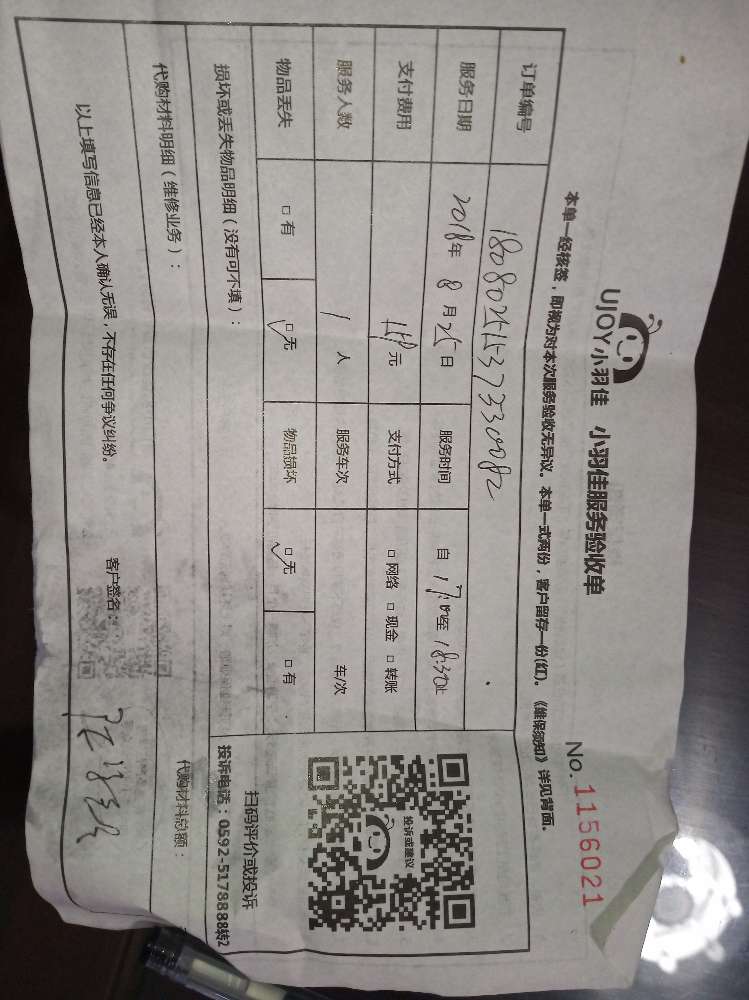 UJOY小羽佳 小羽佳服务验收单
No. 1156021
本单一经核签，即视为对本次服务验收无异议。本单一式两份，客户留存一份(红)。《维保须知》详见背面.
订单编号
服务日期 2018年 8月25日 服务时间 自 17:00至 18:30止
支付费用 元 支付方式 □ 网络 □ 现金 □ 转账
服务人数 1 人 服务车次 车/次
物品丢失 □ 有 □ 无 物品损坏 □ 无 □ 有
投诉或建议
扫码评价或投诉
投诉电话：0592-5178888转2
损坏或丢失物品明细（没有可不填）：
代购材料明细（维修业务）： 代购材料总额：
以上填写信息已经本人确认无误，不存在任何争议纠纷。 客户签名：